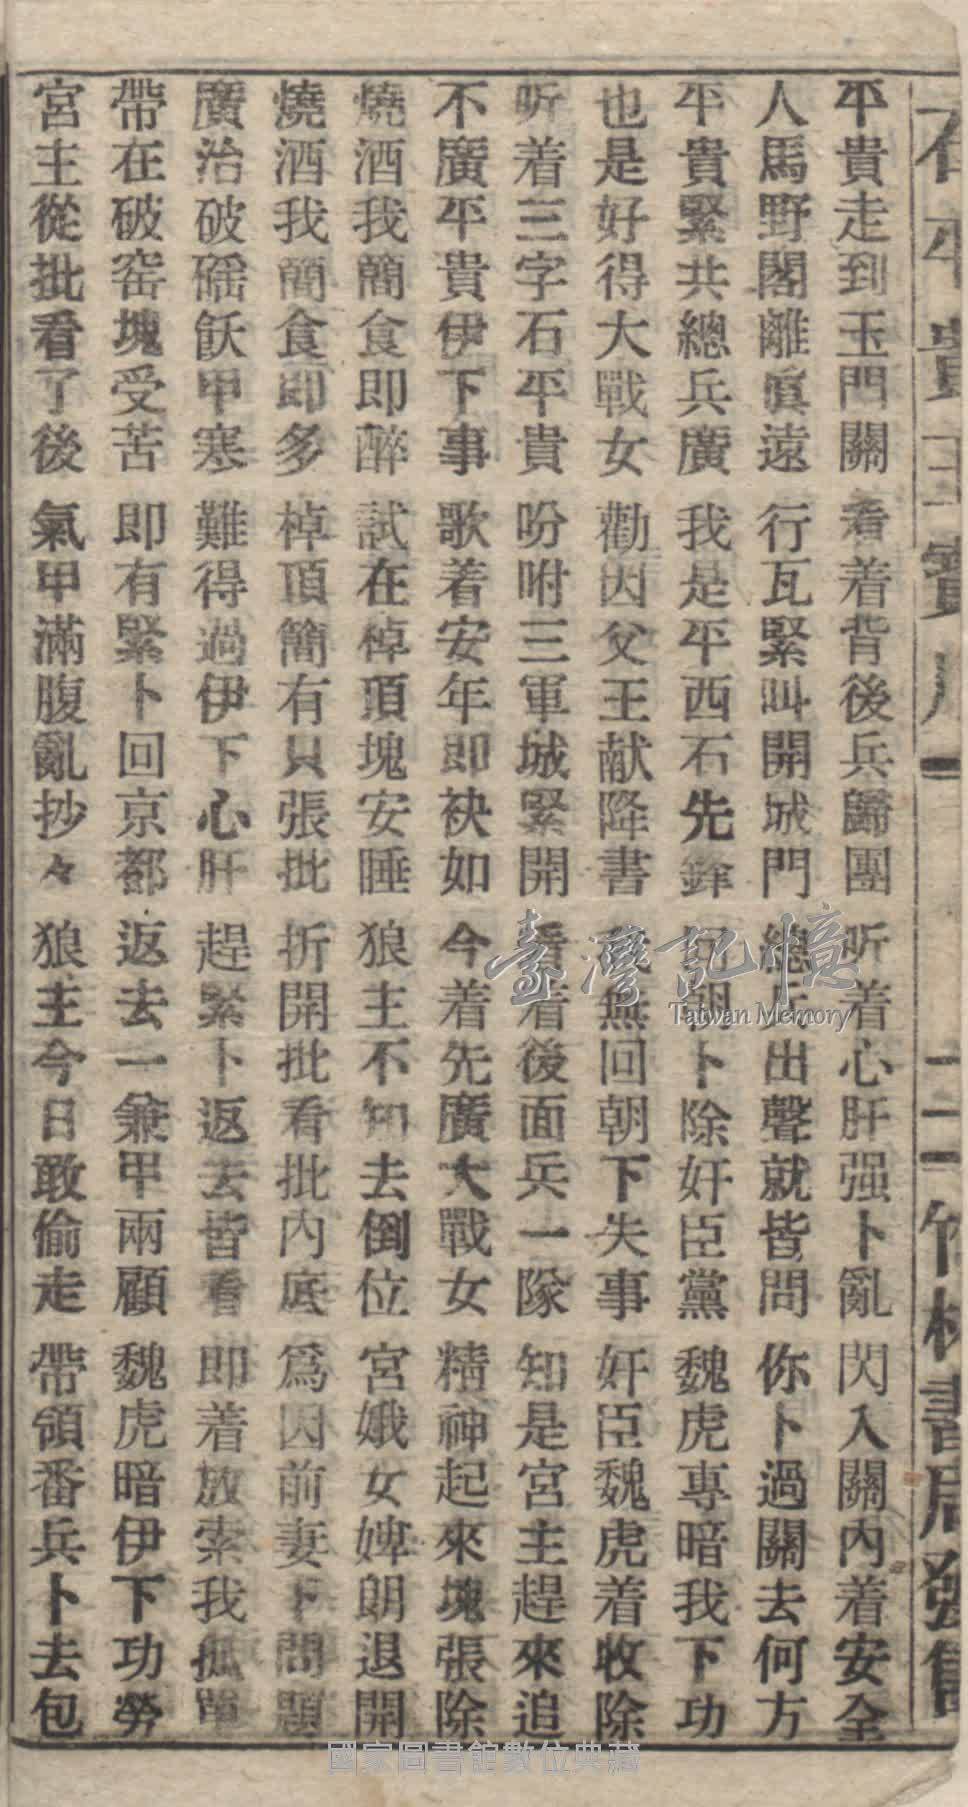 平貴走到玉門關 看着背後兵歸團 听着心肝强卜亂 閃入關內着安全
人馬野閣離眞遠 行瓦緊叫開城門 總兵出聲就皆問 你卜過關去何方
平貴緊共總兵廣 我是平西石先鋒 回朝卜除奸臣黨 魏虎專暗我下功
也是好得大戰女 勸因父王献降書 無回朝下失事 奸臣魏虎着收除
听着三字石平貴 吩咐三軍城緊開 看着後面兵一隊 知是宮主趕來追
不廣平貴伊下事 歌着安年即袂如 今着先廣大戰女 精神起來塊張除
燒酒我簡食即醉 試在棹頂塊安睡 狼主不知去倒位 宮娥女婢朗退開
燒酒我簡食即多 棹頂簡有只張批 折開批看批內底 爲因前妻下問題
廣治破磘飫甲寒 難得過伊下心肝 趕緊卜返去皆看 即着放索我孤單
帶在破窑塊受苦 即有緊卜回京都 返去一兼甲兩顧 魏虎暗伊下功勞
宮主從批看了後 氣甲滿腹亂抄々 狼主今日敢偷走 帶領番兵卜去包
石平貴王寶川 一 二 竹林書局發售
臺灣記憶
Taiwan Memory
國家圖書館數位典藏